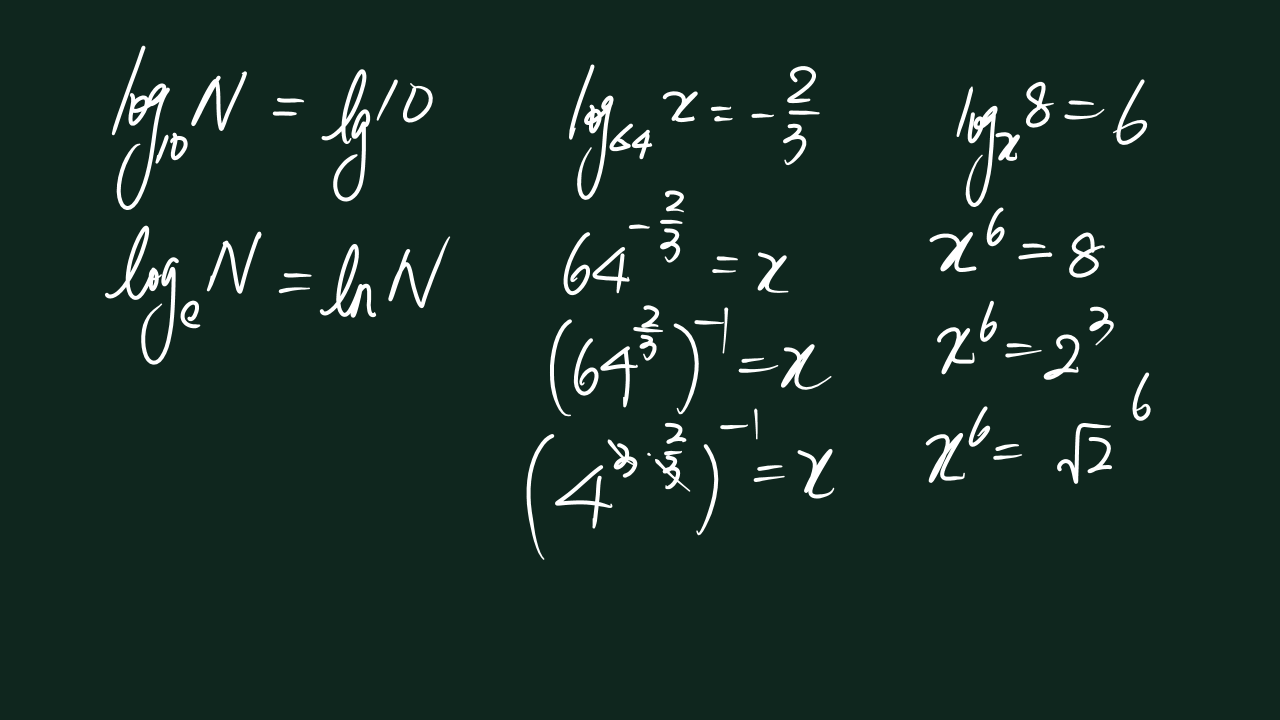 log₁₀ N = lg 10
logₑ N = ln N
log₆₄ x = -2/3
64^(-2/3) = x
(64^(2/3))^-1 = x
(4^(3·2/3))^-1 = x
logₓ 8 = 6
x^6 = 8
x^6 = 2^3
x^6 = √2^6